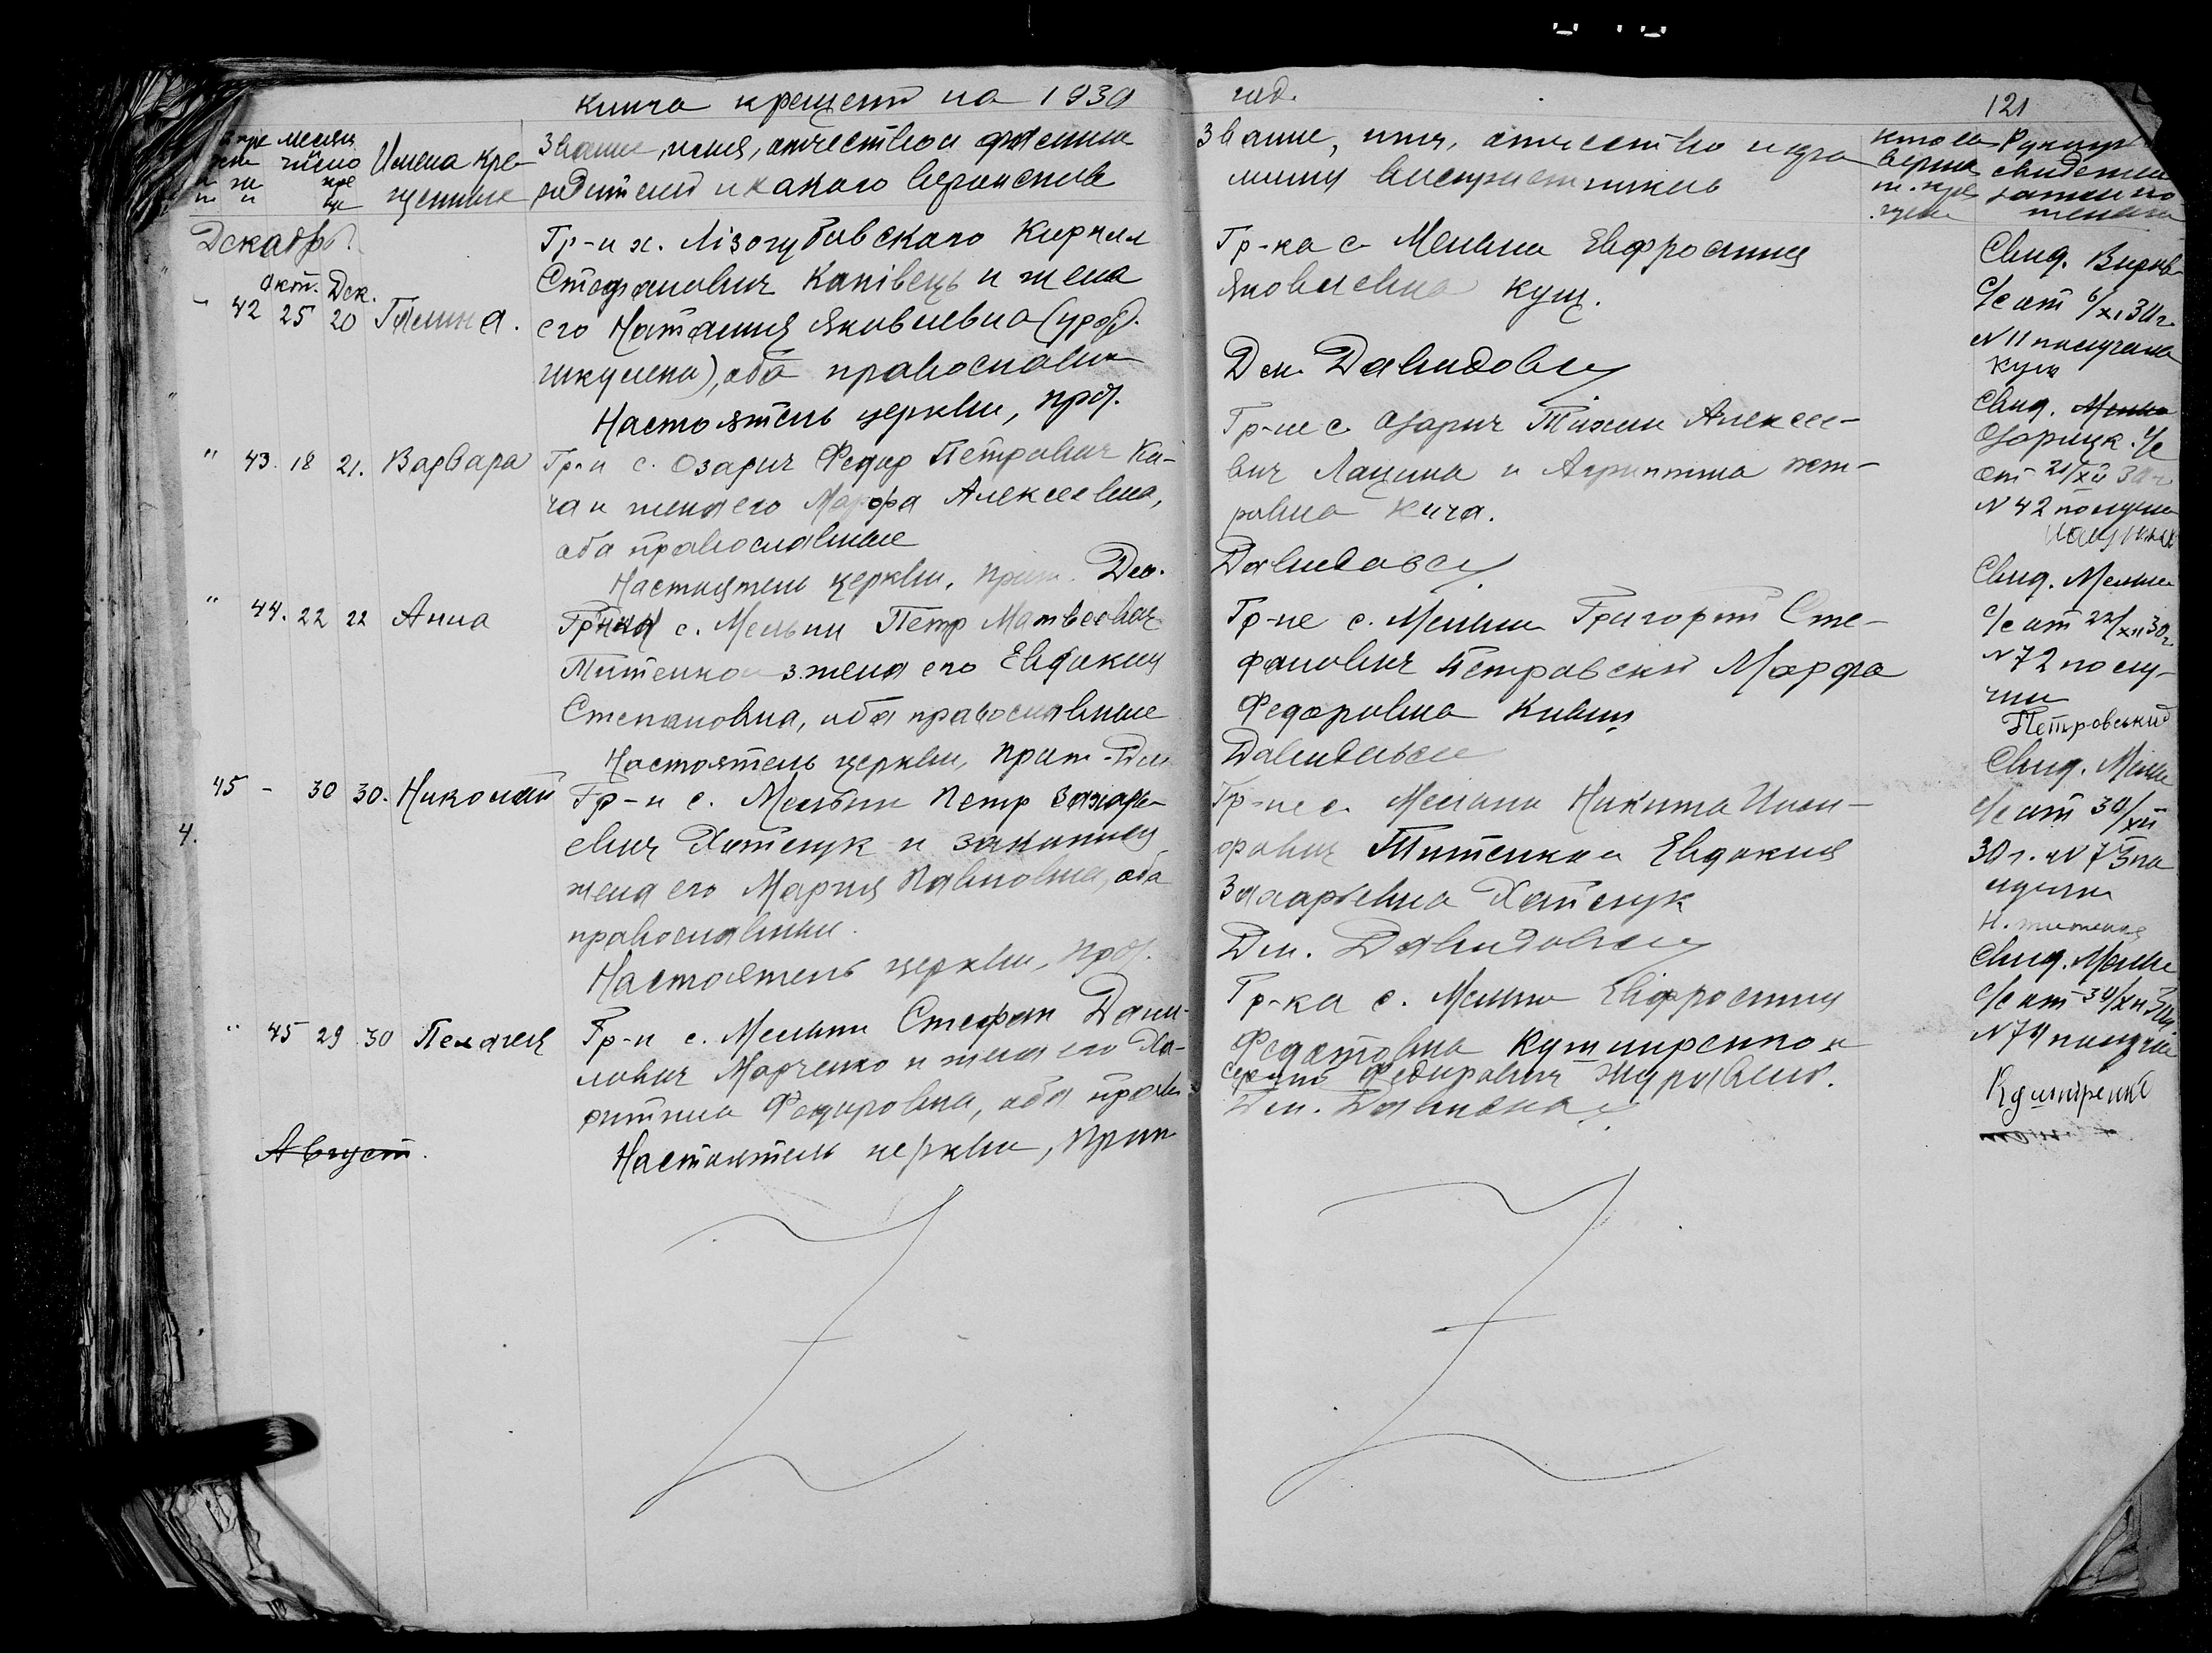 книга крещений на 1930
год.
121
месяц
число
Имена кре-
щенных
Звание, имя, отчество и фамилия
родителей и какого вероисповед
Звание, имя, отчество и фа
милия восприемников
кто со
верш
Рукопр
свидетел
Декабрь.
Окт. Дек.
" 42 25 20 Галина.
Гр-н х. Лізогубовского Кирилл
Стефанович Канівець и жена
его Наталия Яковлевна (урож.
), оба православн
Настоятель церкви, прот.
Гр-ка с. Мельни Евфросиния
Яковлевна Кущ.
Дем. Давидовск
Свид.
с/с от 6/XI 30 г.
N 11 получила
Кущ
" 43. 18 21. Варвара
Гр-н с. Озарич Федор Петрович Ка-
ча и жена его Марфа Алексеевна,
оба православные
Настоятель церкви, прот. Дем.
Гр-не с. Озарич Тихон Алексее-
вич Лацина и Агриппина Пет-
ровна Кача.
Давидовск
Свид. Мельн
Озарицк. с/с
от 21/XII 30 г.
N 42 получил
" 44. 22 22 Анна
с. Мельни Петр Матвеевич
Титенко и з. жена его Евдокия
Степановна, оба православные
Настоятель церкви, прот. Дем
Гр-не с. Мельни Григорий Сте-
фанович Петровский Марфа
Федоровна Книш
Давидовск
Свид. Мельн
с/с от 22/XII 30 г.
N 72 полу-
чил
Петровський
45 - 30 30. Николай
Гр-н с. Мельни Петр Захарь-
евич Хатенук и законная
жена его Мария Павловна, оба
православные.
Настоятель церкви, прот.
4.
Гр-не с. Мельни Никита Ники-
форович Титенко и Евдокия
Захарьевна Хатенук
Дем. Давидовск
Свид. Мельн
с/с от 30/XII
30 г. N 73 по
лучил
Н. Титенко
" 45 29 30 Пелагея
Гр-н с. Мельни Стефан Дани-
лович Марченко и жена его Ха-
ритина Федоровна, оба прав
Настоятель церкви, прот
Гр-ка с. Мельни Евфросиния
Федотовна Кушниренко и
Сергей Федорович Журавель.
Дем. Давидовск
Свид. Мельн
с/с от 30/XII 30 г.
N 74 получил
Кушнренко
Август.